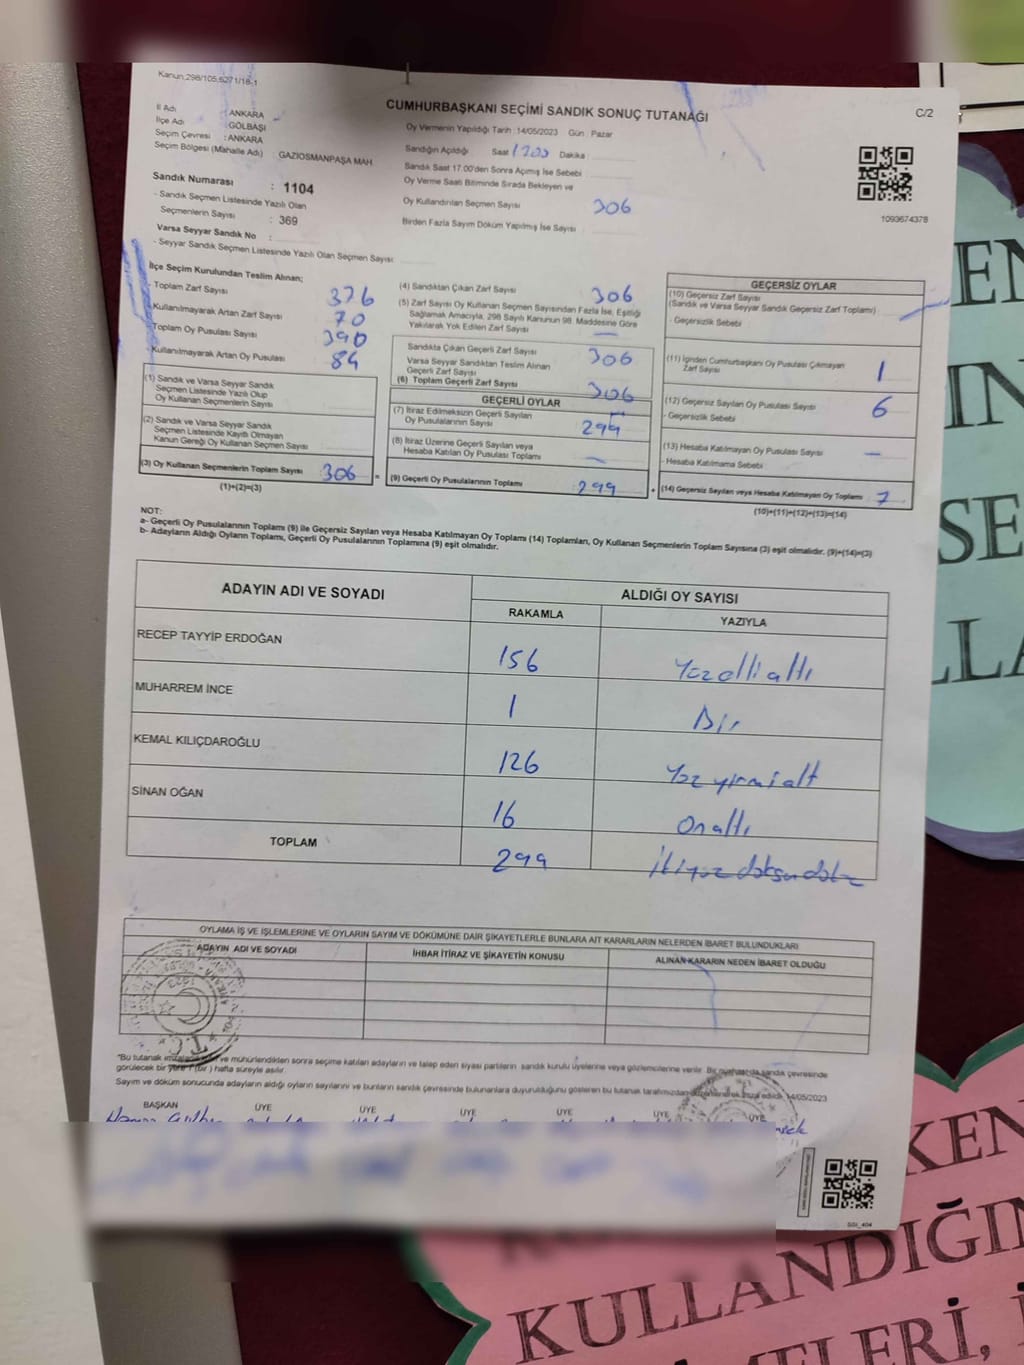 Kanun,298/105,6271/18-1
CUMHURBAŞKANI SEÇİMİ SANDIK SONUÇ TUTANAĞI
C/2
İl Adı : ANKARA
İlçe Adı : GÖLBAŞI
Seçim Çevresi : ANKARA
Seçim Bölgesi (Mahalle Adı) : GAZİOSMANPAŞA MAH.
Oy Vermenin Yapıldığı Tarih : 14/05/2023 Gün : Pazar
Sandığın Açıldığı Saat Dakika :
Sandık Saat 17.00'den Sonra Açımış İse Sebebi
Oy Verme Saati Bitiminde Sırada Bekleyen ve
Oy Kullandırılan Seçmen Sayısı 306
Birden Fazla Sayım Döküm Yapılmış İse Sayısı :
1093674378
Sandık Numarası : 1104
- Sandık Seçmen Listesinde Yazılı Olan
Seçmenlerin Sayısı : 369
Varsa Seyyar Sandık No :
- Seyyar Sandık Seçmen Listesinde Yazılı Olan Seçmen Sayısı
İlçe Seçim Kurulundan Teslim Alınan;
- Toplam Zarf Sayısı 376
- Kullanılmayarak Artan Zarf Sayısı 70
- Toplam Oy Pusulası Sayısı 390
- Kullanılmayarak Artan Oy Pusulası 84
(1) Sandık ve Varsa Seyyar Sandık
Seçmen Listesinde Yazılı Olup
Oy Kullanan Seçmenlerin Sayısı
(2) Sandık ve Varsa Seyyar Sandık
Seçmen Listesinde Kayıtlı Olmayan
Kanun Gereği Oy Kullanan Seçmen Sayısı
(3) Oy Kullanan Seçmenlerin Toplam Sayısı 306 =
(1)+(2)=(3)
(4) Sandıktan Çıkan Zarf Sayısı 306
(5) Zarf Sayısı Oy Kullanan Seçmen Sayısından Fazla İse, Eşitliği
Sağlamak Amacıyla, 298 Sayılı Kanunun 98. Maddesine Göre
Yakılarak Yok Edilen Zarf Sayısı —
Sandıkta Çıkan Geçerli Zarf Sayısı 306
Varsa Seyyar Sandıktan Teslim Alınan
Geçerli Zarf Sayısı
(6) Toplam Geçerli Zarf Sayısı 306
GEÇERLİ OYLAR
(7) İtiraz Edilmeksizin Geçerli Sayılan
Oy Pusulalarının Sayısı 299
(8) İtiraz Üzerine Geçerli Sayılan veya
Hesaba Katılan Oy Pusulası Toplamı —
(9) Geçerli Oy Pusulalarının Toplamı 299 +
GEÇERSİZ OYLAR
(10) Geçersiz Zarf Sayısı
(Sandık ve Varsa Seyyar Sandık Geçersiz Zarf Toplamı)
- Geçersizlik Sebebi
(11) İçinden Cumhurbaşkanı Oy Pusulası Çıkmayan
Zarf Sayısı 1
(12) Geçersiz Sayılan Oy Pusulası Sayısı 6
- Geçersizlik Sebebi
(13) Hesaba Katılmayan Oy Pusulası Sayısı —
- Hesaba Katılmama Sebebi
(14) Geçersiz Sayılan veya Hesaba Katılmayan Oy Toplamı 7
(10)+(11)+(12)+(13)=(14)
NOT:
a- Geçerli Oy Pusulalarının Toplamı (9) ile Geçersiz Sayılan veya Hesaba Katılmayan Oy Toplamı (14) Toplamları, Oy Kullanan Seçmenlerin Toplam Sayısına (3) eşit olmalıdır. (9)+(14)=(3)
b- Adayların Aldığı Oyların Toplamı, Geçerli Oy Pusulalarının Toplamına (9) eşit olmalıdır.
ADAYIN ADI VE SOYADI
ALDIĞI OY SAYISI
RAKAMLA YAZIYLA
RECEP TAYYİP ERDOĞAN 156 Yüz elli altı
MUHARREM İNCE 1 Bir
KEMAL KILIÇDAROĞLU 126 Yüz yirmi altı
SİNAN OĞAN 16 On altı
TOPLAM 299 İkiyüz doksan dokuz
OYLAMA İŞ VE İŞLEMLERİNE VE OYLARIN SAYIM VE DÖKÜMÜNE DAİR ŞİKAYETLERLE BUNLARA AİT KARARLARIN NELERDEN İBARET BULUNDUKLARI
ADAYIN ADI VE SOYADI
İHBAR İTİRAZ VE ŞİKAYETİN KONUSU
ALINAN KARARIN NEDEN İBARET OLDUĞU
*Bu tutanak ve mühürlendikten sonra seçime katılan adayların ve talep eden siyasi partilerin sandık kurulu üyelerine veya gözlemcilerine verilir. Bir sandık çevresinde
görülecek bir yere 1 (bir) hafta süreyle asılır.
Sayım ve döküm sonucunda adayların aldığı oyların sayılarını ve bunların sandık çevresinde bulunanlara duyurulduğunu gösteren bu tutanak tarafımızdan 14/05/2023
BAŞKAN ÜYE ÜYE ÜYE ÜYE ÜYE ÜYE
SGI_404
KULLANDIĞIN